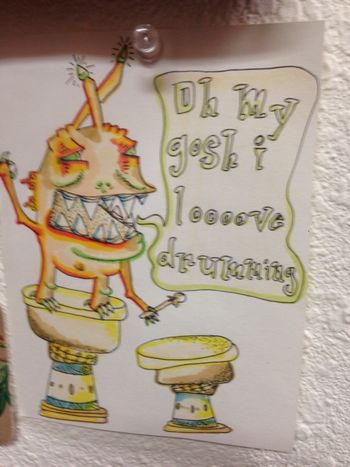 Oh my
gosh i
loooove
drumming